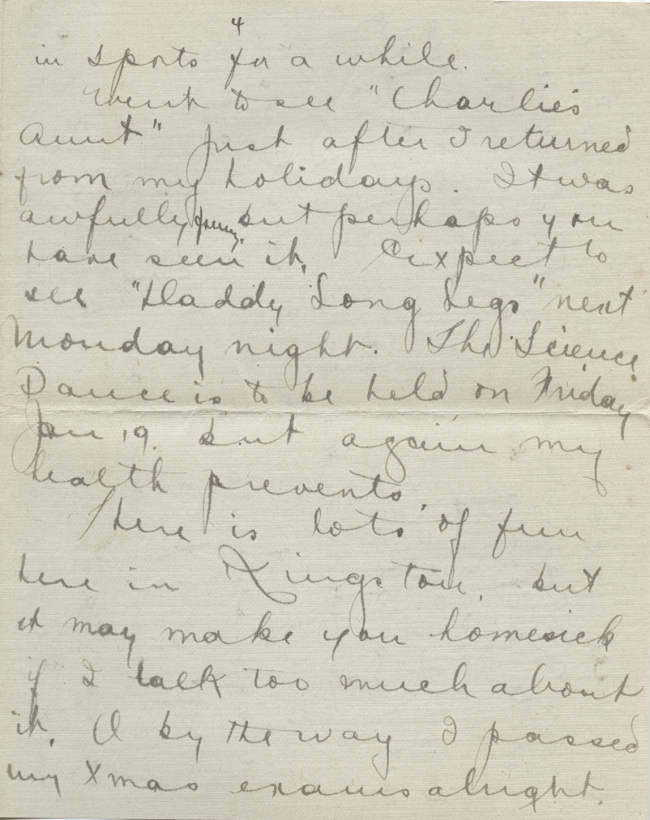 4
in sports for a while.
Went to see "Charlie's
Aunt" just after I returned
from my holidays. It was
awfully funny but perhaps you
have seen it. Expect to
see "Daddy Long Legs" next
Monday night. The Science
Dance is to be held on Friday
Jan 19. but again my
health prevents.
There is lots of fun
here in Kingston, but
it may make you homesick
if I talk too much about
it. O by the way I passed
my Xmas exams alright.